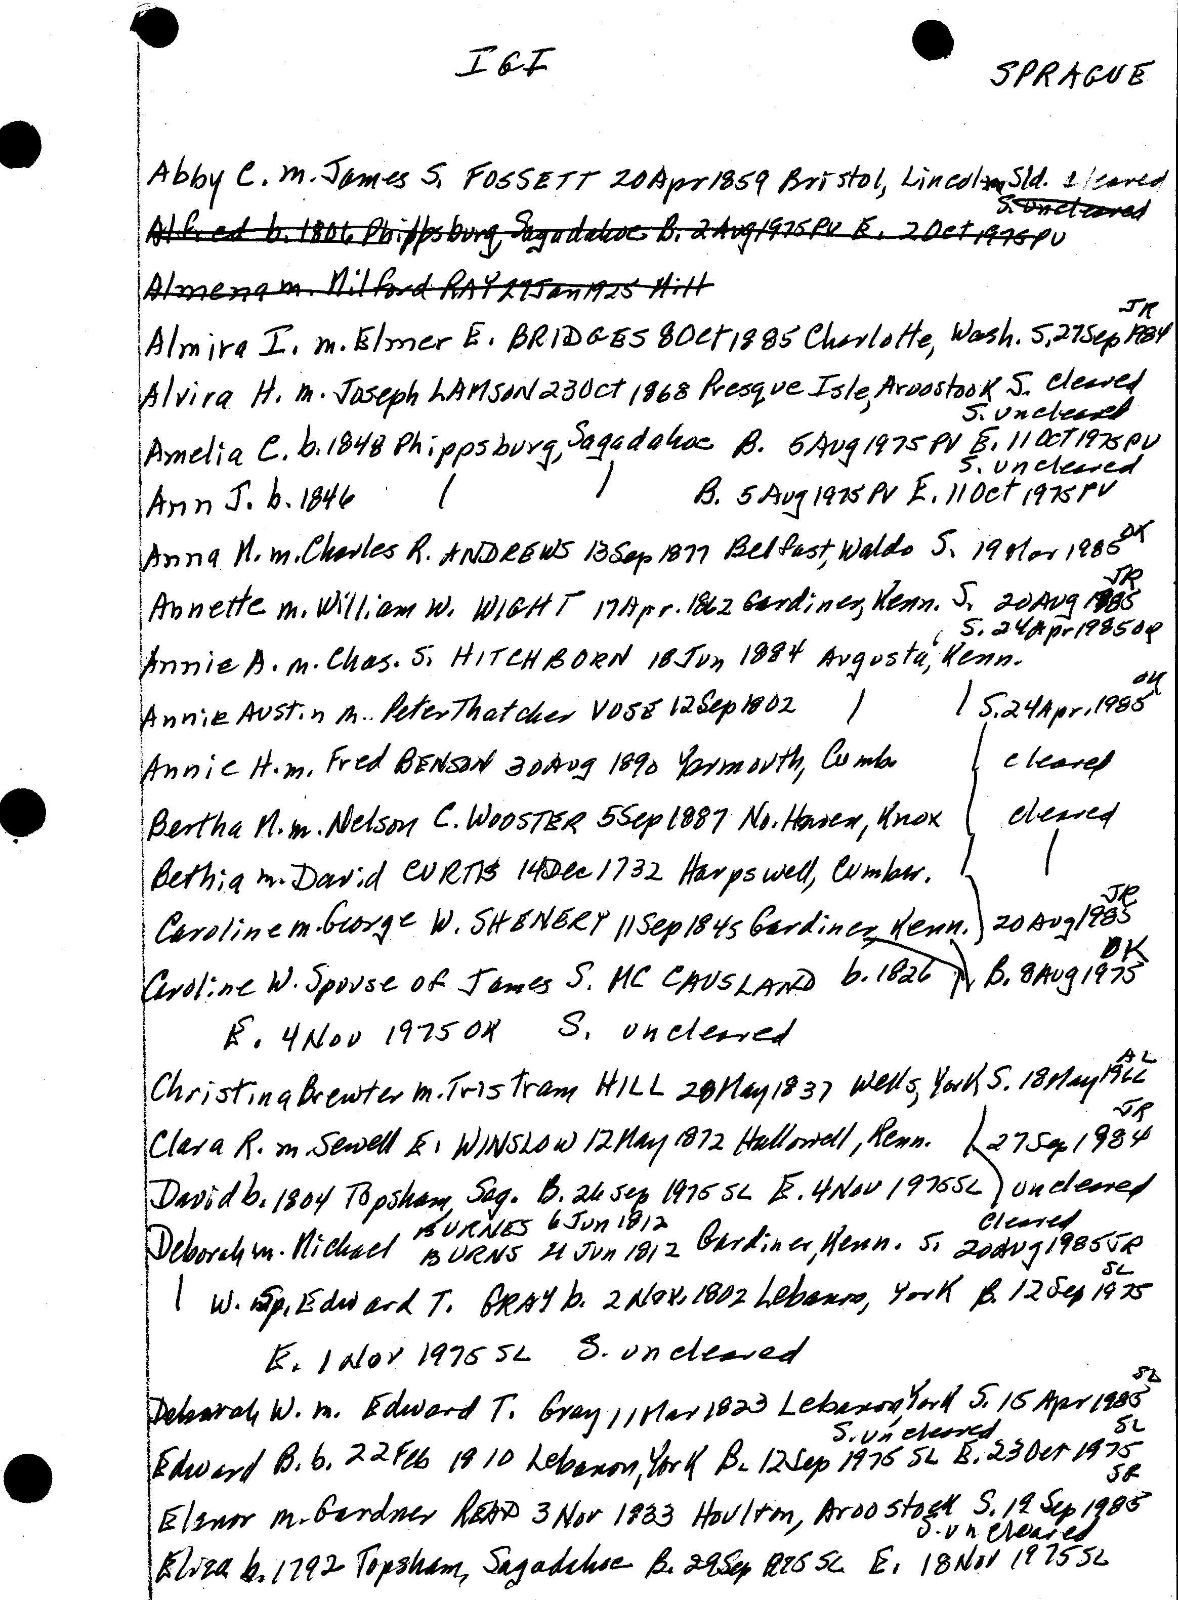 IGI
SPRAGUE
Abby C. m. James S. FOSSETT 20 Apr 1859 Bristol, Lincoln Sld. cleared
S. uncleared
Alfred b. 1806 Phippsburg, Sagadahoc B. 2 Aug 1975 PV E. 2 Oct 1975 PV
Almena m. Milford RAY 27 Jan 1925 Milt
JR
Almira I. m. Elmer E. BRIDGES 8 Oct 1885 Charlotte, Wash. S. 27 Sep 1984
Alvira H. m. Joseph LAMSON 23 Oct 1868 Presque Isle, Aroostook S. cleared
S. uncleared
Amelia C. b. 1848 Phippsburg, Sagadahoc B. 5 Aug 1975 PV E. 11 Oct 1975 PV
S. uncleared
Ann J. b. 1846 B. 5 Aug 1975 PV E. 11 Oct 1975 PV
Anna M. m. Charles R. ANDREWS 13 Sep 1877 Belfast, Waldo S. 19 Mar 1985 OK
JR
Annette m. William W. WIGHT 17 Apr. 1862 Gardiner, Kenn. S. 20 Aug 1985
S. 24 Apr 1985
Annie A. m. Chas. S. HITCHBORN 18 Jun 1884 Augusta, Kenn.
Annie Austin m. Peter Thatcher VOSE 12 Sep 1802 S. 24 Apr. 1985
Annie H. m. Fred BENSON 30 Aug 1890 Yarmouth, Cumb cleared
Bertha M. m. Nelson C. WOOSTER 5 Sep 1887 No. Haven, Knox cleared
Bethia m. David CURTIS 14 Dec 1732 Harpswell, Cumber.
JR
Caroline m. George W. SHENERY 11 Sep 1845 Gardiner, Kenn. 20 Aug 1985
OK
Caroline W. Spouse of James S. MC CAUSLAND b. 1826 B. 8 Aug 1975
E. 4 Nov 1975 OK S. uncleared
AL
Christina Brewter m. Tristram HILL 28 May 1837 Wells, York S. 18 May 1966
JR
Clara R. m. Sewell E. WINSLOW 12 May 1872 Hallowell, Kenn. 27 Sep 1984
David b. 1804 Topsham, Sag. B. 26 Sep 1975 SL E. 4 Nov 1975 SL uncleared
BURNES 6 Jun 1812 cleared
Deborah m. Michael BURNS 21 Jun 1812 Gardiner, Kenn. S. 20 Aug 1985 JR
SL
W. Sp. Edward T. GRAY b. 2 Nov. 1802 Lebanon, York B. 12 Sep 1975
E. 1 Nov 1975 SL S. uncleared
SL
Deborah W. m. Edward T. Gray 11 Mar 1823 Lebanon, York S. 15 Apr 1985
S. uncleared SL
Edward B. b. 22 Feb 1910 Lebanon, York B. 12 Sep 1975 SL E. 23 Oct 1975
Elenor m. Gardner READ 3 Nov 1833 Houlton, Aroostook S. 19 Sep 1985
S. uncleared
Eliza b. 1792 Topsham, Sagadahoc B. 29 Sep 1975 SL E. 18 Nov 1975 SL